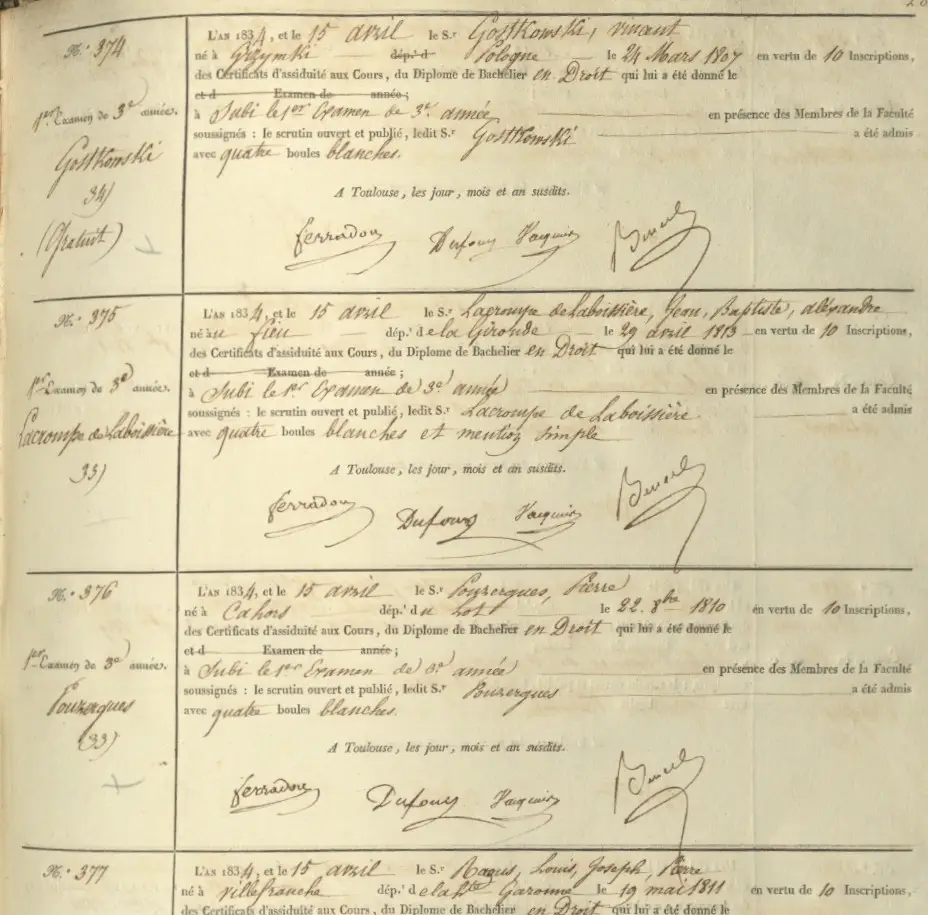 N.° 374
1.er Examen de 3e année.
Gostkowski
34)
(Gratuit)
L'AN 1834, et le 15 avril le S.r Gostkowski, vincent
né à Grzymki dép.t d Pologne le 24 Mars 1807 en vertu de 10 Inscriptions,
des Certificats d'assiduité aux Cours, du Diplome de Bachelier en Droit qui lui a été donné le
et d Examen de année;
à Subi le 1er Examen de 3e. année en présence des Membres de la Faculté
soussignés : le scrutin ouvert et publié, ledit S.r Gostkowski a été admis
avec quatre boules blanches.
A Toulouse, les jour, mois et an susdits.
ferradou Dufour
N.° 375
1.er Examen de 3e année.
Lacrompe de Laboissière
33)
L'AN 1834, et le 15 avril le S.r Lacrompe de Laboissière, Jean, Baptiste, alexandre
né au fieu dép.t de la Gironde le 29 avril 1813 en vertu de 10 Inscriptions,
des Certificats d'assiduité aux Cours, du Diplome de Bachelier en Droit qui lui a été donné le
et d Examen de année;
à Subi le 1er Examen de 3e année en présence des Membres de la Faculté
soussignés : le scrutin ouvert et publié, ledit S.r Lacrompe de Laboissière a été admis
avec quatre boules blanches et mention simple
A Toulouse, les jour, mois et an susdits.
ferradou Dufour
N.° 376
1.er Examen de 3e année.
Pouzergues
33)
L'AN 1834, et le 15 avril le S.r Pouzergues, Pierre
né à Cahors dép.t du Lot le 22. 8bre 1810 en vertu de 10 Inscriptions,
des Certificats d'assiduité aux Cours, du Diplome de Bachelier en Droit qui lui a été donné le
et d Examen de année;
à Subi le 1er Examen de 3e année en présence des Membres de la Faculté
soussignés : le scrutin ouvert et publié, ledit S.r Pouzergues a été admis
avec quatre boules blanches.
A Toulouse, les jour, mois et an susdits.
ferradou Dufour
N.° 377
L'AN 1834, et le 15 avril le S.r Louis, Joseph, Pierre
né à villefranche dép.t de la hte Garonne le 19 mai 1811 en vertu de 10 Inscriptions,
des Certificats d'assiduité aux Cours, du Diplome de Bachelier en Droit qui lui a été donné le